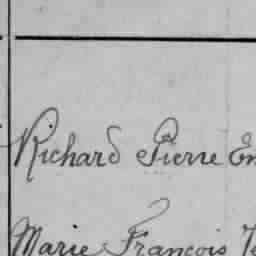 Richard Pierre
Marie François